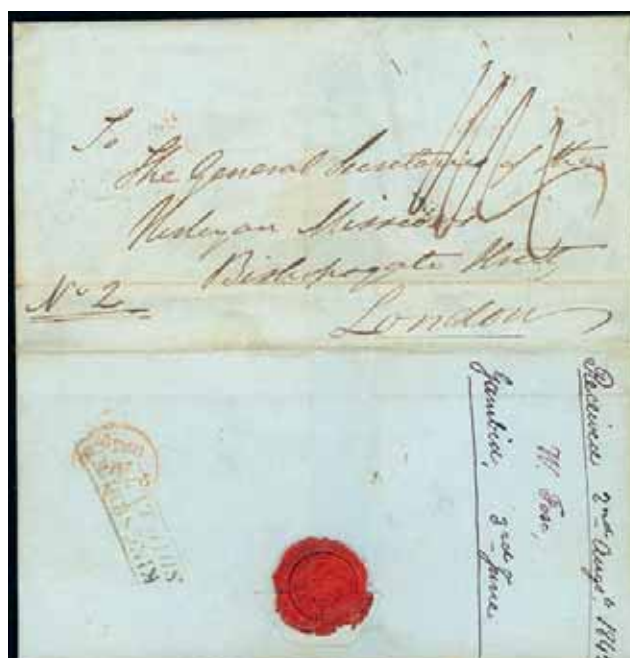 To
The General Secretaries of the
Wesleyan Missions
Bishopsgate Street
London
No 2
Received 2nd Augt.
W. Fox,
Gambia, 3rd June